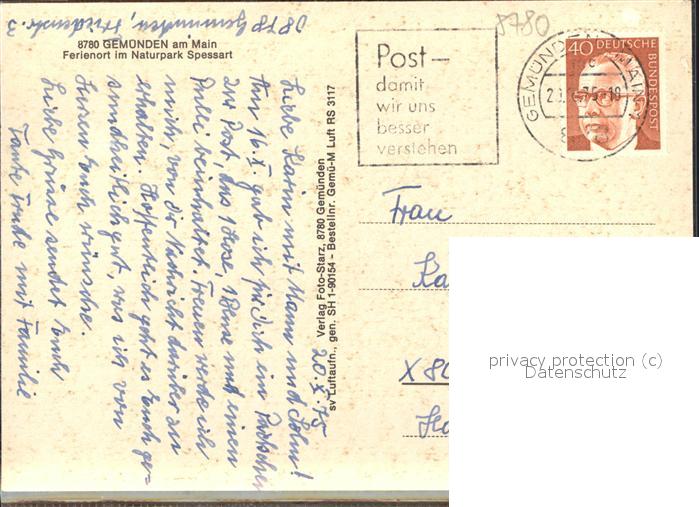 D 878 Gemünden, Friedenstr. 3
8780 GEMÜNDEN am Main
Ferienort im Naturpark Spessart
20.X.75
Liebe Karin mit Mann und Sohn!
Am 16.X. gab ich für Dich ein Päckchen
zur Post, das 1 Hose, 1 Bluse und einen
Pulli beinhaltet. Freuen werde ich
mich, von Dir Nachricht darüber zu
erhalten. Hoffentlich geht es Euch ge-
sundheitlich gut, was ich von
Herzen Euch wünsche.
Liebe Grüsse sendet Euch
Tante Trude mit Familie
Verlag Foto-Starz, 8780 Gemünden
sv Luftaufn., gen. SH 1-90154 - Bestellnr. Gemü-M Luft RS 3117
8780
Post –
damit
wir uns
besser
verstehen
GEMÜNDEN MAIN
40 DEUTSCHE
BUNDESPOST
Frau
Ka
X 80
privacy protection (c)
Datenschutz